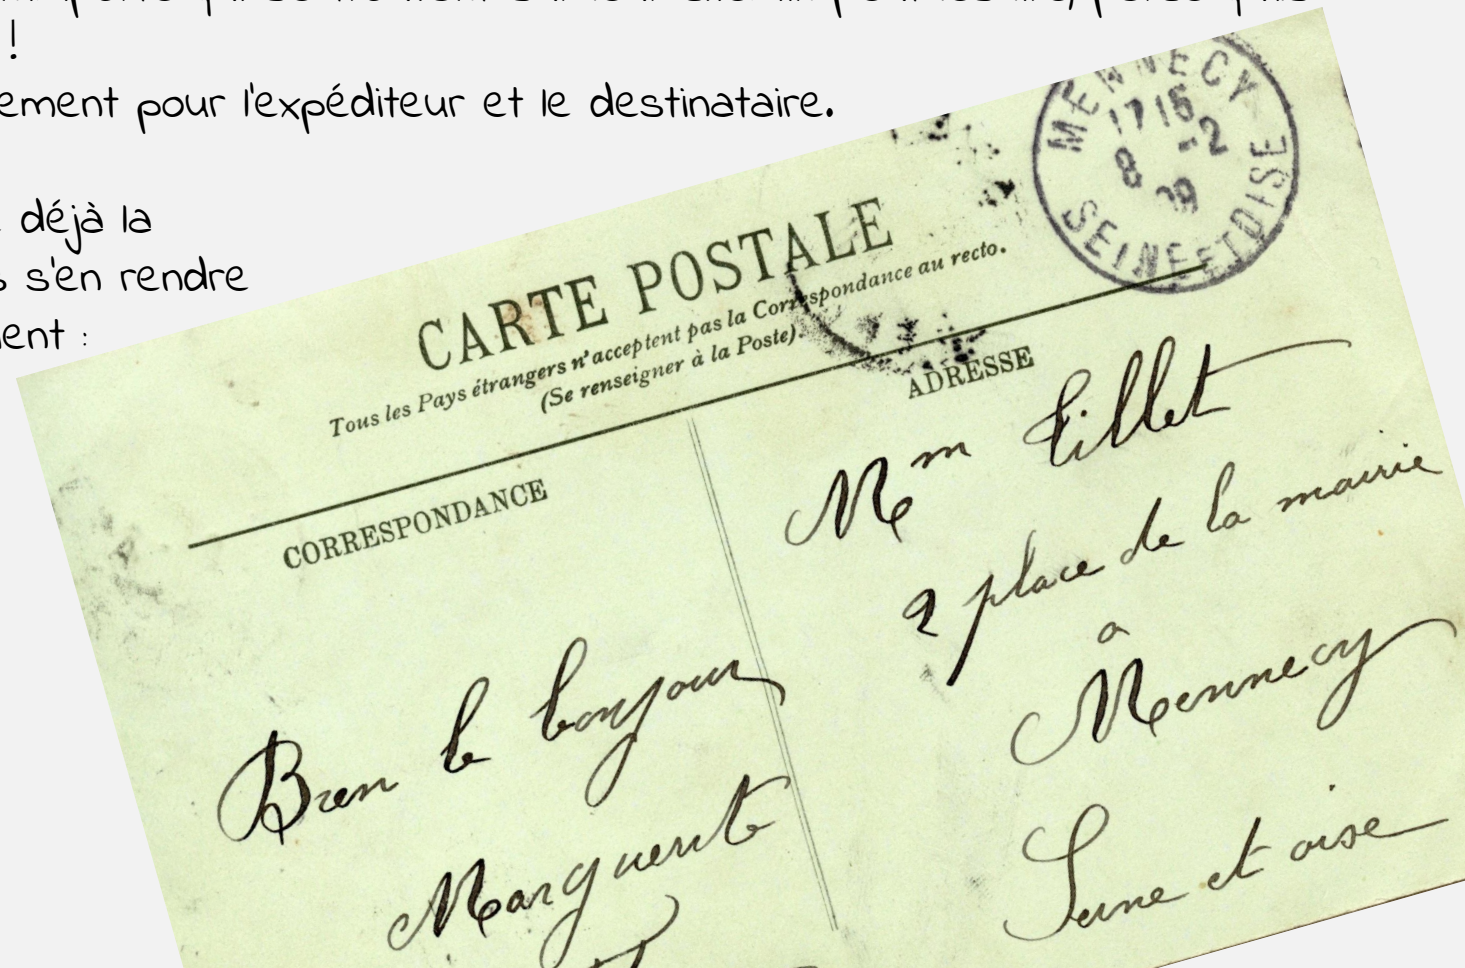 !
ement pour l'expéditeur et le destinataire.
déjà la
s s'en rendre
ent :
MENNECY
1715
8 -2
09
SEINE ET OISE
CARTE POSTALE
Tous les Pays étrangers n'acceptent pas la Correspondance au recto.
(Se renseigner à la Poste)
CORRESPONDANCE
ADRESSE
Mm Tillet
2 place de la mairie
a
Mennecy
Seine et oise
Bien le bonjour
Marguerite